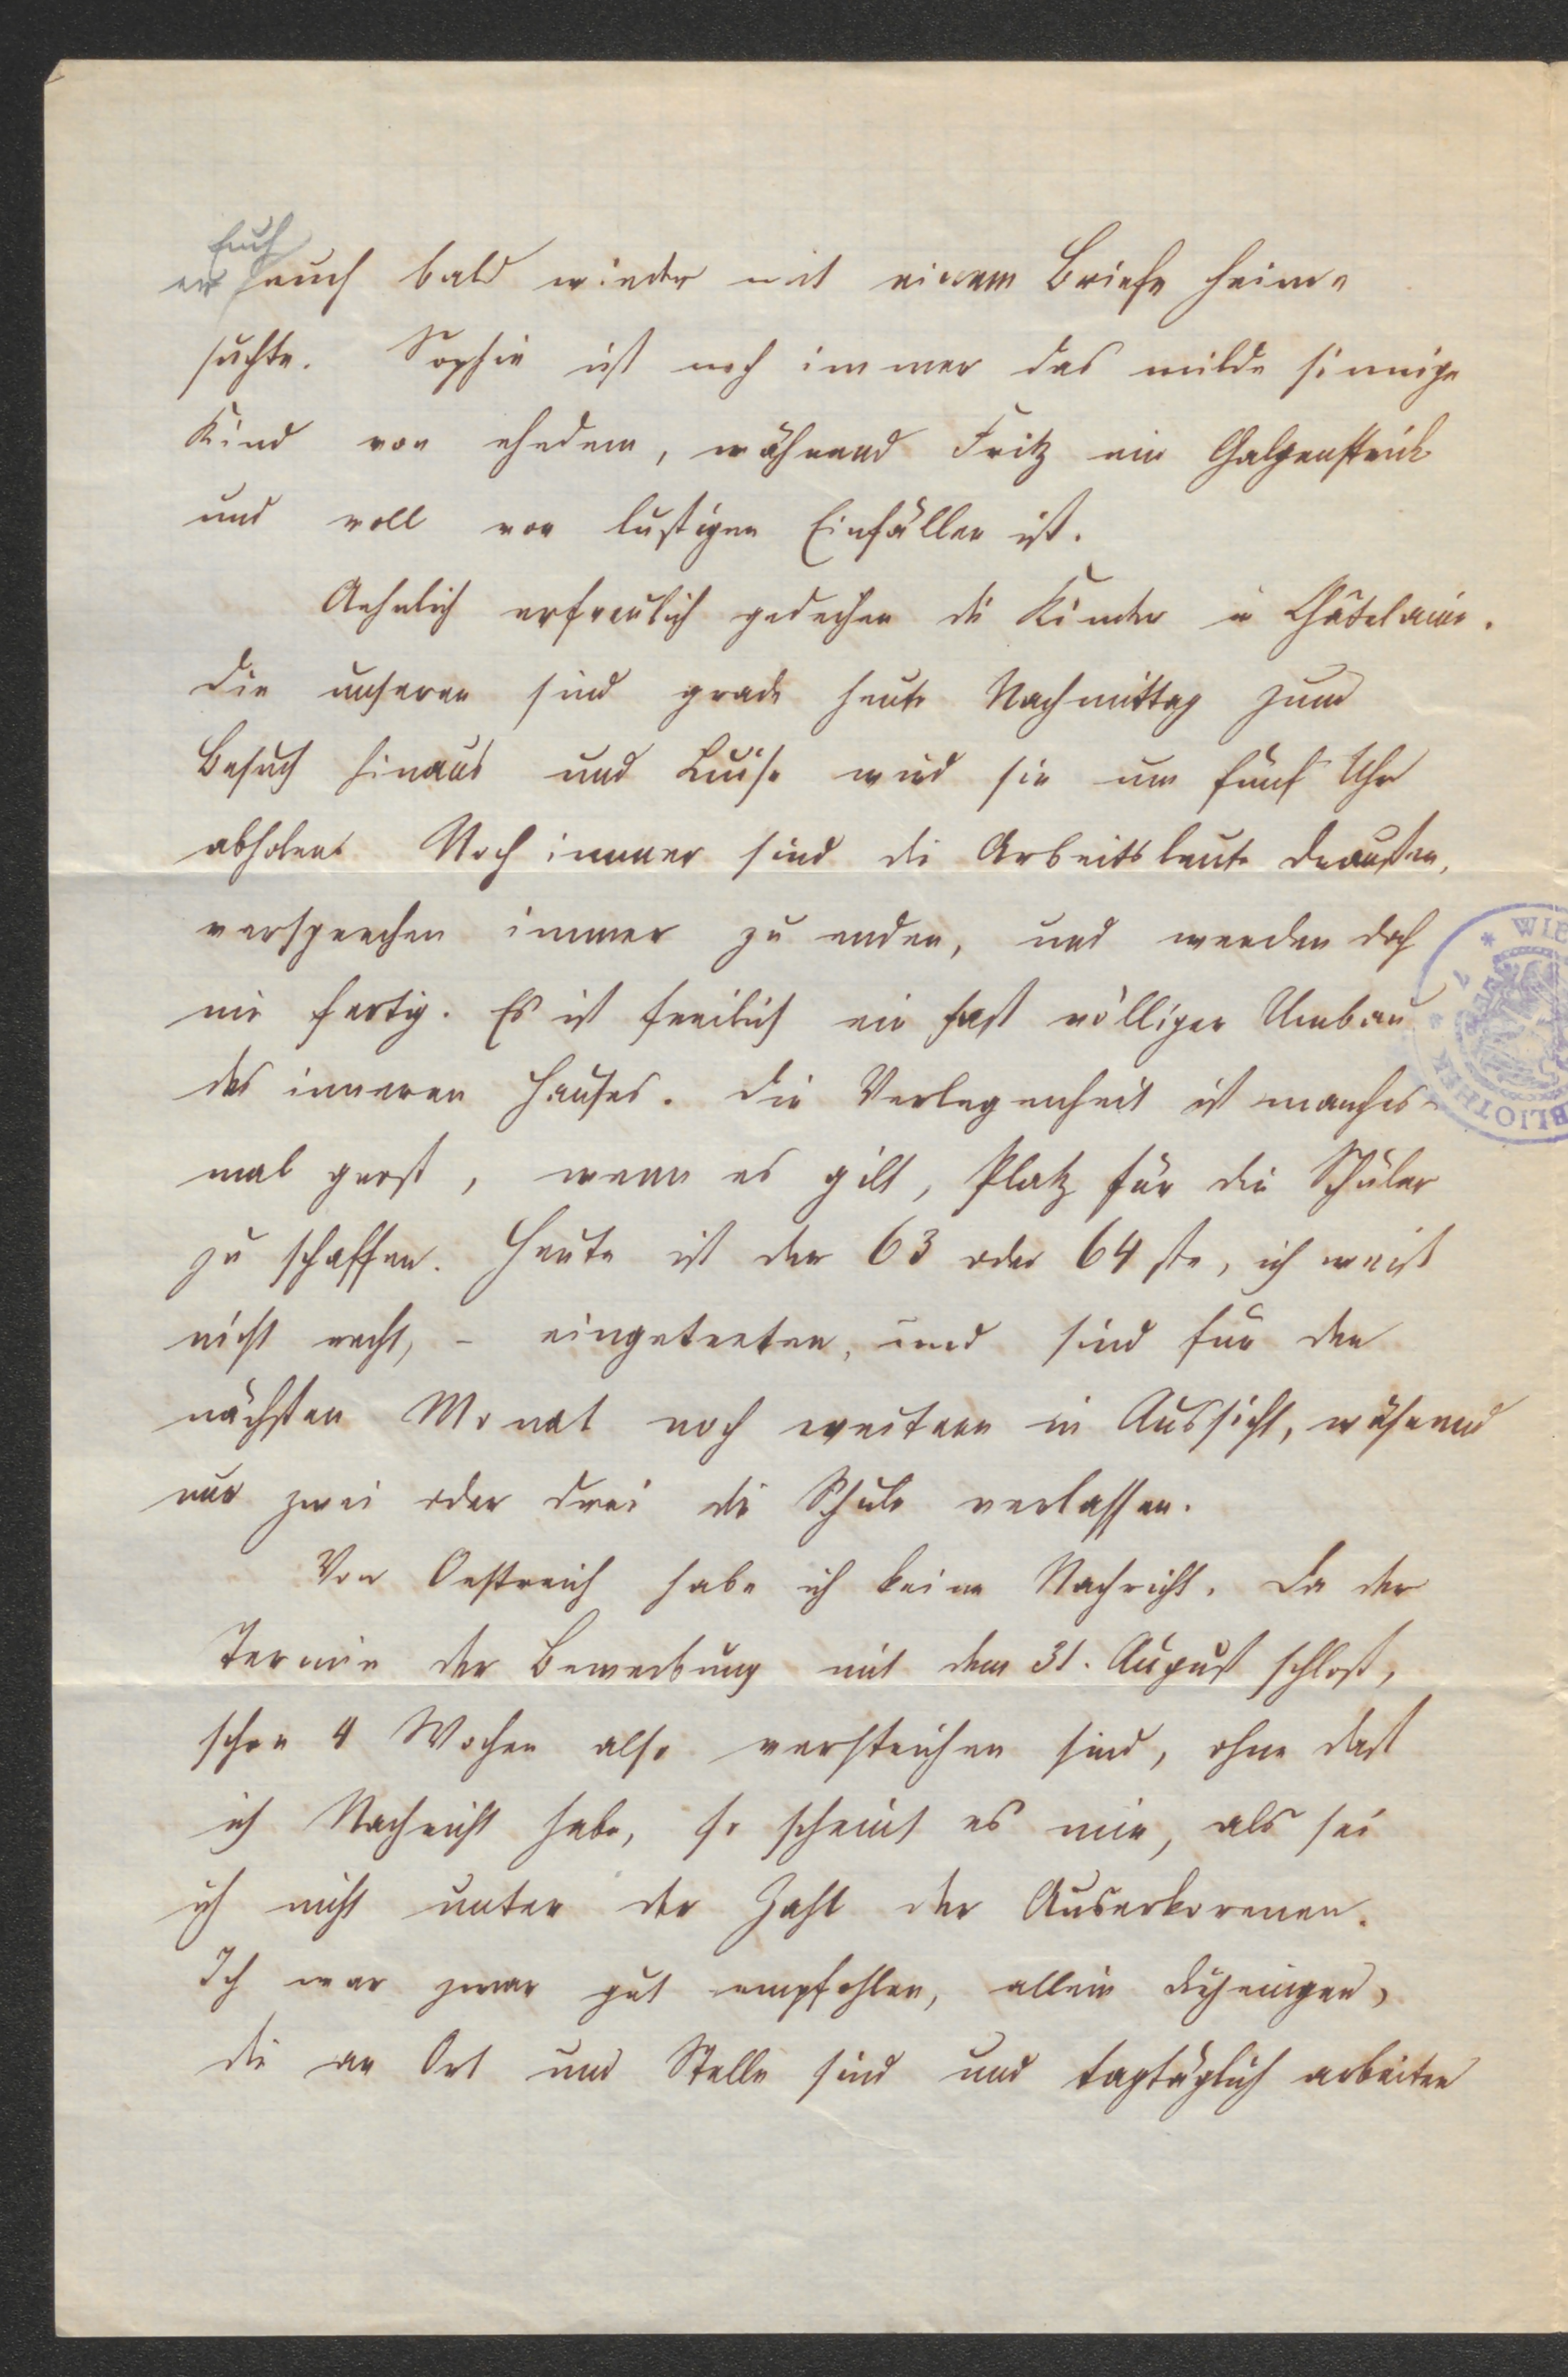 Euch
er auch bald wieder mit einem Briefe heim-
suchte. Sophie ist noch immer das milde sinnige
Kind von ehedem, während Fritz ein Galgenstrick
und voll von lustigen Einfällen ist.
Aehnlich erfreulich gedeihen die Kinder in Châtelaine.
Die unseren sind grade heute Nachmittag zum
Besuch hinaus und Luise wird sie um fünf Uhr
abholen. Noch immer sind die Arbeitsleute draußen,
versprechen immer zu enden, und werden doch
nie fertig. Es ist freilich ein fast völliger Umbau
des inneren Hauses. Die Verlegenheit ist manches-
mal groß, wenn es gilt, Platz für die Schüler
zu schaffen. Heute ist der 63 oder 64ste, ich weiß
nicht recht, – eingetreten, und sind für den
nächsten Monat noch weitere in Aussicht, während
nur zwei oder drei die Schule verlassen.
Von Oestreich habe ich keine Nachricht. Da der
Termin der Bewerbung mit dem 31. August schloß,
schon 4 Wochen also verstrichen sind, ohne daß
ich Nachricht habe, so scheint es mir, als sei
ich nicht unter der Zahl der Auserkorenen.
Ich war zwar gut empfohlen, allein diejenigen,
die an Ort und Stelle sind und tagtäglich arbeiten